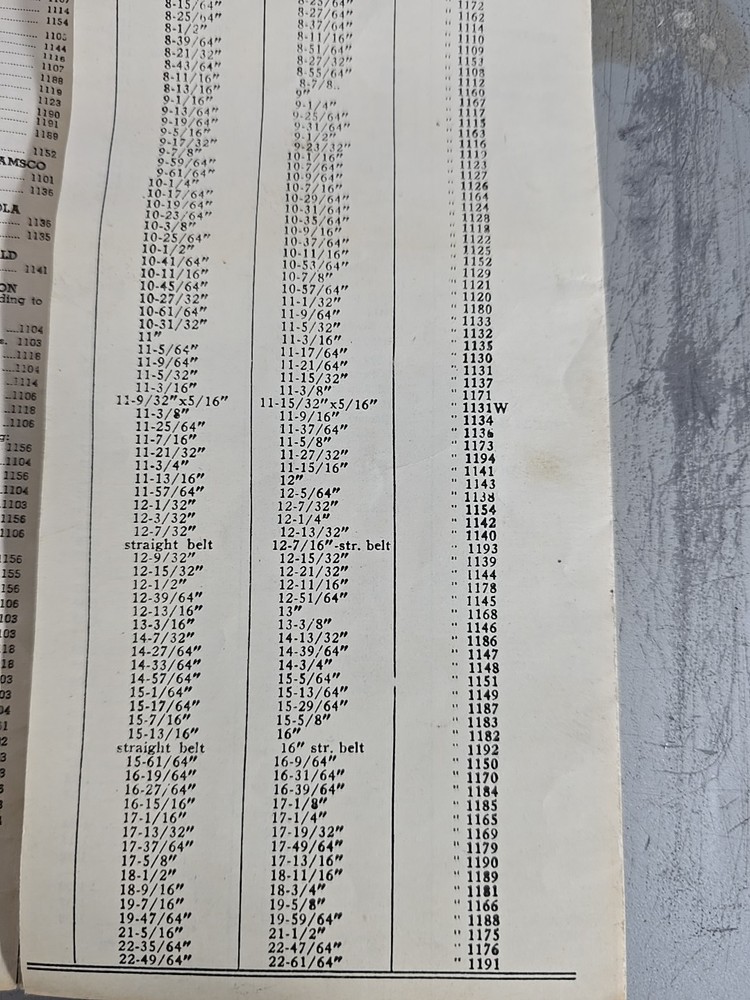 1114
1154
1144
1116
1107
1188
1119
1123
1190
1191
1189
1152
AMSCO
1101
1136
OLA
1136
1135
LD
1141
ON
ding to
....1104
s. 1103
....1118
....1104
....1114
...1106
...1118
...1106
g:
1156
..1104
1156
..1104
.1103
1156
1106
156
155
156
106
103
103
18
18
03
03
04
1
2
3
3
" 1172
8-23/64" " 1162
8-15/64" 8-27/64" " 1114
8-25/64" 8-37/64" " 1110
8-1/2" 8-11/16" " 1109
8-39/64" 8-51/64" " 1153
8-21/32" 8-27/32" " 1108
8-43/64" 8-55/64" " 1112
8-11/16" 8-7/8.. " 1160
8-13/16" 9" " 1167
9-1/16" 9-1/4" " 1117
9-13/64" 9-25/64" " 1115
9-19/64" 9-31/64" " 1163
9-5/16" 9-1/2" " 1116
9-17/32" 9-23/32" " 1119
9-7/8" 10-1/16" " 1123
9-59/64" 10-7/64" " 1127
9-61/64" 10-9/64" " 1126
10-1/4" 10-7/16" " 1164
10-17/64" 10-29/64" " 1124
10-19/64" 10-31/64" " 1128
10-23/64" 10-35/64" " 1118
10-3/8" 10-9/16" " 1122
10-25/64" 10-37/64" " 1125
10-1/2" 10-11/16" " 1152
10-41/64" 10-53/64" " 1129
10-11/16" 10-7/8" " 1121
10-45/64" 10-57/64" " 1120
10-27/32" 11-1/32" " 1180
10-61/64" 11-9/64" " 1133
10-31/32" 11-5/32" " 1132
11" 11-3/16" " 1135
11-5/64" 11-17/64" " 1130
11-9/64" 11-21/64" " 1131
11-5/32" 11-15/32" " 1137
11-3/16" 11-3/8" " 1171
11-9/32"x5/16" 11-15/32"x5/16" " 1131W
11-3/8" 11-9/16" " 1134
11-25/64" 11-37/64" " 1136
11-7/16" 11-5/8" " 1173
11-21/32" 11-27/32" " 1194
11-3/4" 11-15/16" " 1141
11-13/16" 12" " 1143
11-57/64" 12-5/64" " 1138
12-1/32" 12-7/32" " 1154
12-3/32" 12-1/4" " 1142
12-7/32" 12-13/32" " 1140
straight belt 12-7/16"-str. belt " 1193
12-9/32" 12-15/32" " 1139
12-15/32" 12-21/32" " 1144
12-1/2" 12-11/16" " 1178
12-39/64" 12-51/64" " 1145
12-13/16" 13" " 1168
13-3/16" 13-3/8" " 1146
14-7/32" 14-13/32" " 1186
14-27/64" 14-39/64" " 1147
14-33/64" 14-3/4" " 1148
14-57/64" 15-5/64" " 1151
15-1/64" 15-13/64" " 1149
15-17/64" 15-29/64" " 1187
15-7/16" 15-5/8" " 1183
15-13/16" 16" " 1182
straight belt 16" str. belt " 1192
15-61/64" 16-9/64" " 1150
16-19/64" 16-31/64" " 1170
16-27/64" 16-39/64" " 1184
16-15/16" 17-1/8" " 1185
17-1/16" 17-1/4" " 1165
17-13/32" 17-19/32" " 1169
17-37/64" 17-49/64" " 1179
17-5/8" 17-13/16" " 1190
18-1/2" 18-11/16" " 1189
18-9/16" 18-3/4" " 1181
19-7/16" 19-5/8" " 1166
19-47/64" 19-59/64" " 1188
21-5/16" 21-1/2" " 1175
22-35/64" 22-47/64" " 1176
22-49/64" 22-61/64" " 1191